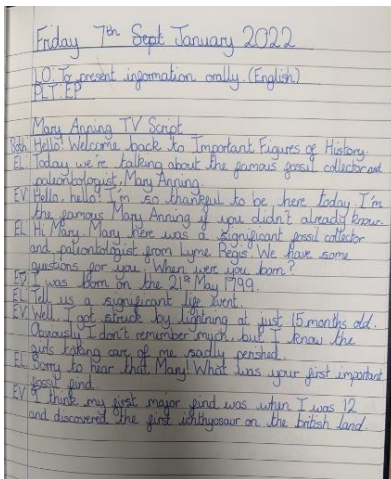 Friday 7th Sept January 2022
LO: To present information orally. (English)
PLT: EP
Mary Anning TV Script
Both Hello! Welcome back to Important Figures of History.
EL Today we're talking about the famous fossil collector and
paleontologist, Mary Anning.
EV Hello, hello! I'm so thankful to be here today. I'm
the famous Mary Anning if you didn't already know.
EL Hi Mary. Mary here was a significant fossil collector
and paleontologist from Lyme Regis. We have some
questions for you. When were you born?
I was born on the 21st May 1799.
EL Tell us a significant life event.
EV Well, I got struck by lightning at just 15 months old.
Obviously I don't remember much, but I know the
girls taking care of me sadly perished.
EL Sorry to hear that Mary! What was your first important
fossil find.
EV I think my first major find was when I was 12
and discovered the first ichthyosaur on the british land.